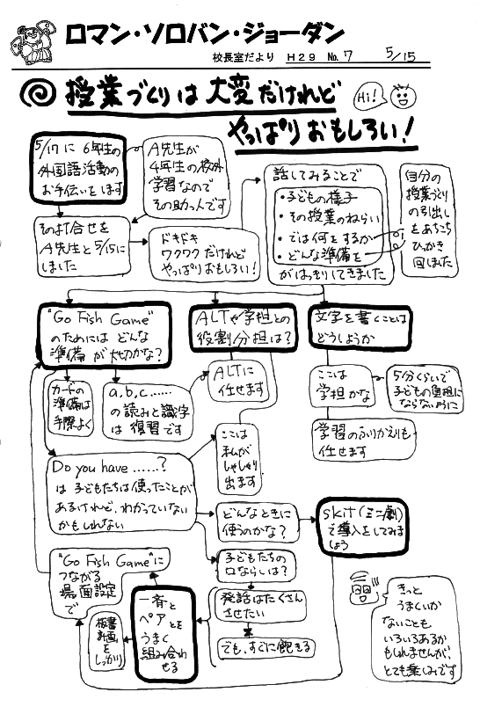 ロマン・ソロバン・ジョーダン
校長室だより H29 No.7 5/15
授業づくりは大変だけれど
やっぱりおもしろい！
Hi!
5/17に6年生の
外国語活動の
お手伝いをします
A先生が
4年生の校外
学習なので
その助っ人です
その打合せを
A先生と5/15に
しました
ドキドキ
ワクワクだけれど
やっぱりおもしろい！
話してみることで
・子どもの様子
・その授業のねらい
・では何をするか
・どんな準備を
がはっきりしてきました
自分の
授業づくり
の引出し
をあちこち
ひっかき
回しました
"Go Fish Game"
のためにはどんな
準備が大切かな？
ALTや学担との
役割分担は？
文字を書くことは
どうしようか
カードの
準備は
手際よく
a,b,c......
の読みと識字
は復習です
ALTに
任せます
ここは
学担かな
5分くらいで
子どもの負担に
ならないように
ここは
私が
しゃしゃり
出ます
学習のふりかえりも
任せます
Do you have ......?
は子どもたちは使ったことが
あるけれど、わかっていない
かもしれない
どんなときに
使うのかな？
skit(ミニ劇)
で導入をしてみま
しょう
"Go Fish Game"に
つながる
場面設定
で
子どもたちの
口ならしは？
発話はたくさん
させたい
でも、すぐに飽きる
一斉と
ペアとを
うまく
組み合わ
せる
板書
計画を
しっかり
きっと
うまくいか
ないことも
いろいろあるか
もしれませんが、
とても楽しみです